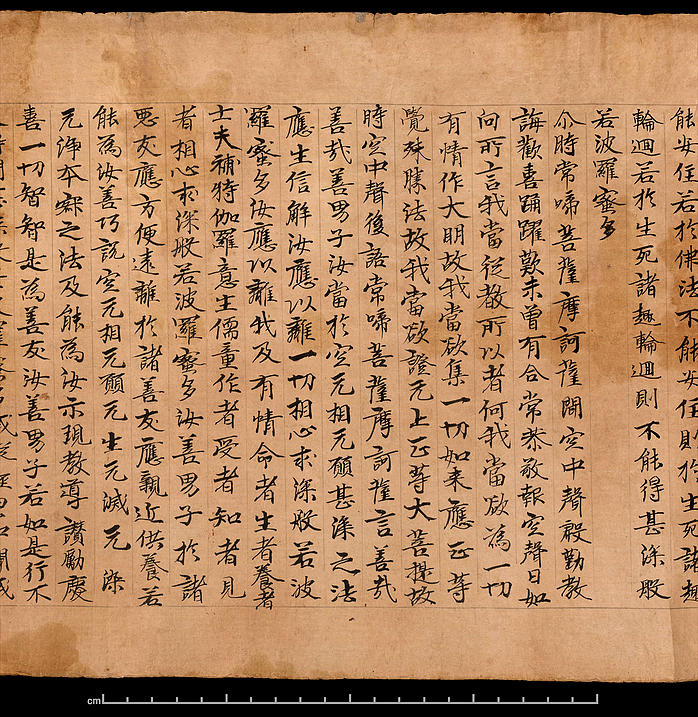 能安住若於佛法不能安住則於生死諸趣
輪迴若於生死諸趣輪迴則不能得甚深般
若波羅蜜多
尒時常啼菩薩摩訶薩聞空中聲殷勤教
誨歡喜踊躍歎未曾有合常恭敬報空聲曰如
向所言我當從教所以者何我當欲為一切
有情作大明故我當欲集一切如来應正等
覺殊勝法故我當欲證无上正等大菩提故
時空中聲復語常啼菩薩摩訶薩言善哉
善哉善男子汝當於空无相无願甚深之法
應生信解汝應以離一切相心求深般若波
羅蜜多汝應以離我及有情命者生者養者
士夫補特伽羅意生儒童作者受者知者見
者相心求深般若波羅蜜多汝善男子於諸
惡友應方便遠離於諸善友應親近供養若
能為汝善巧說空无相无願无生无滅无染
无淨本寂之法及能為汝示現教導讚勵慶
喜一切智智是為善友汝善男子若如是行不
cm